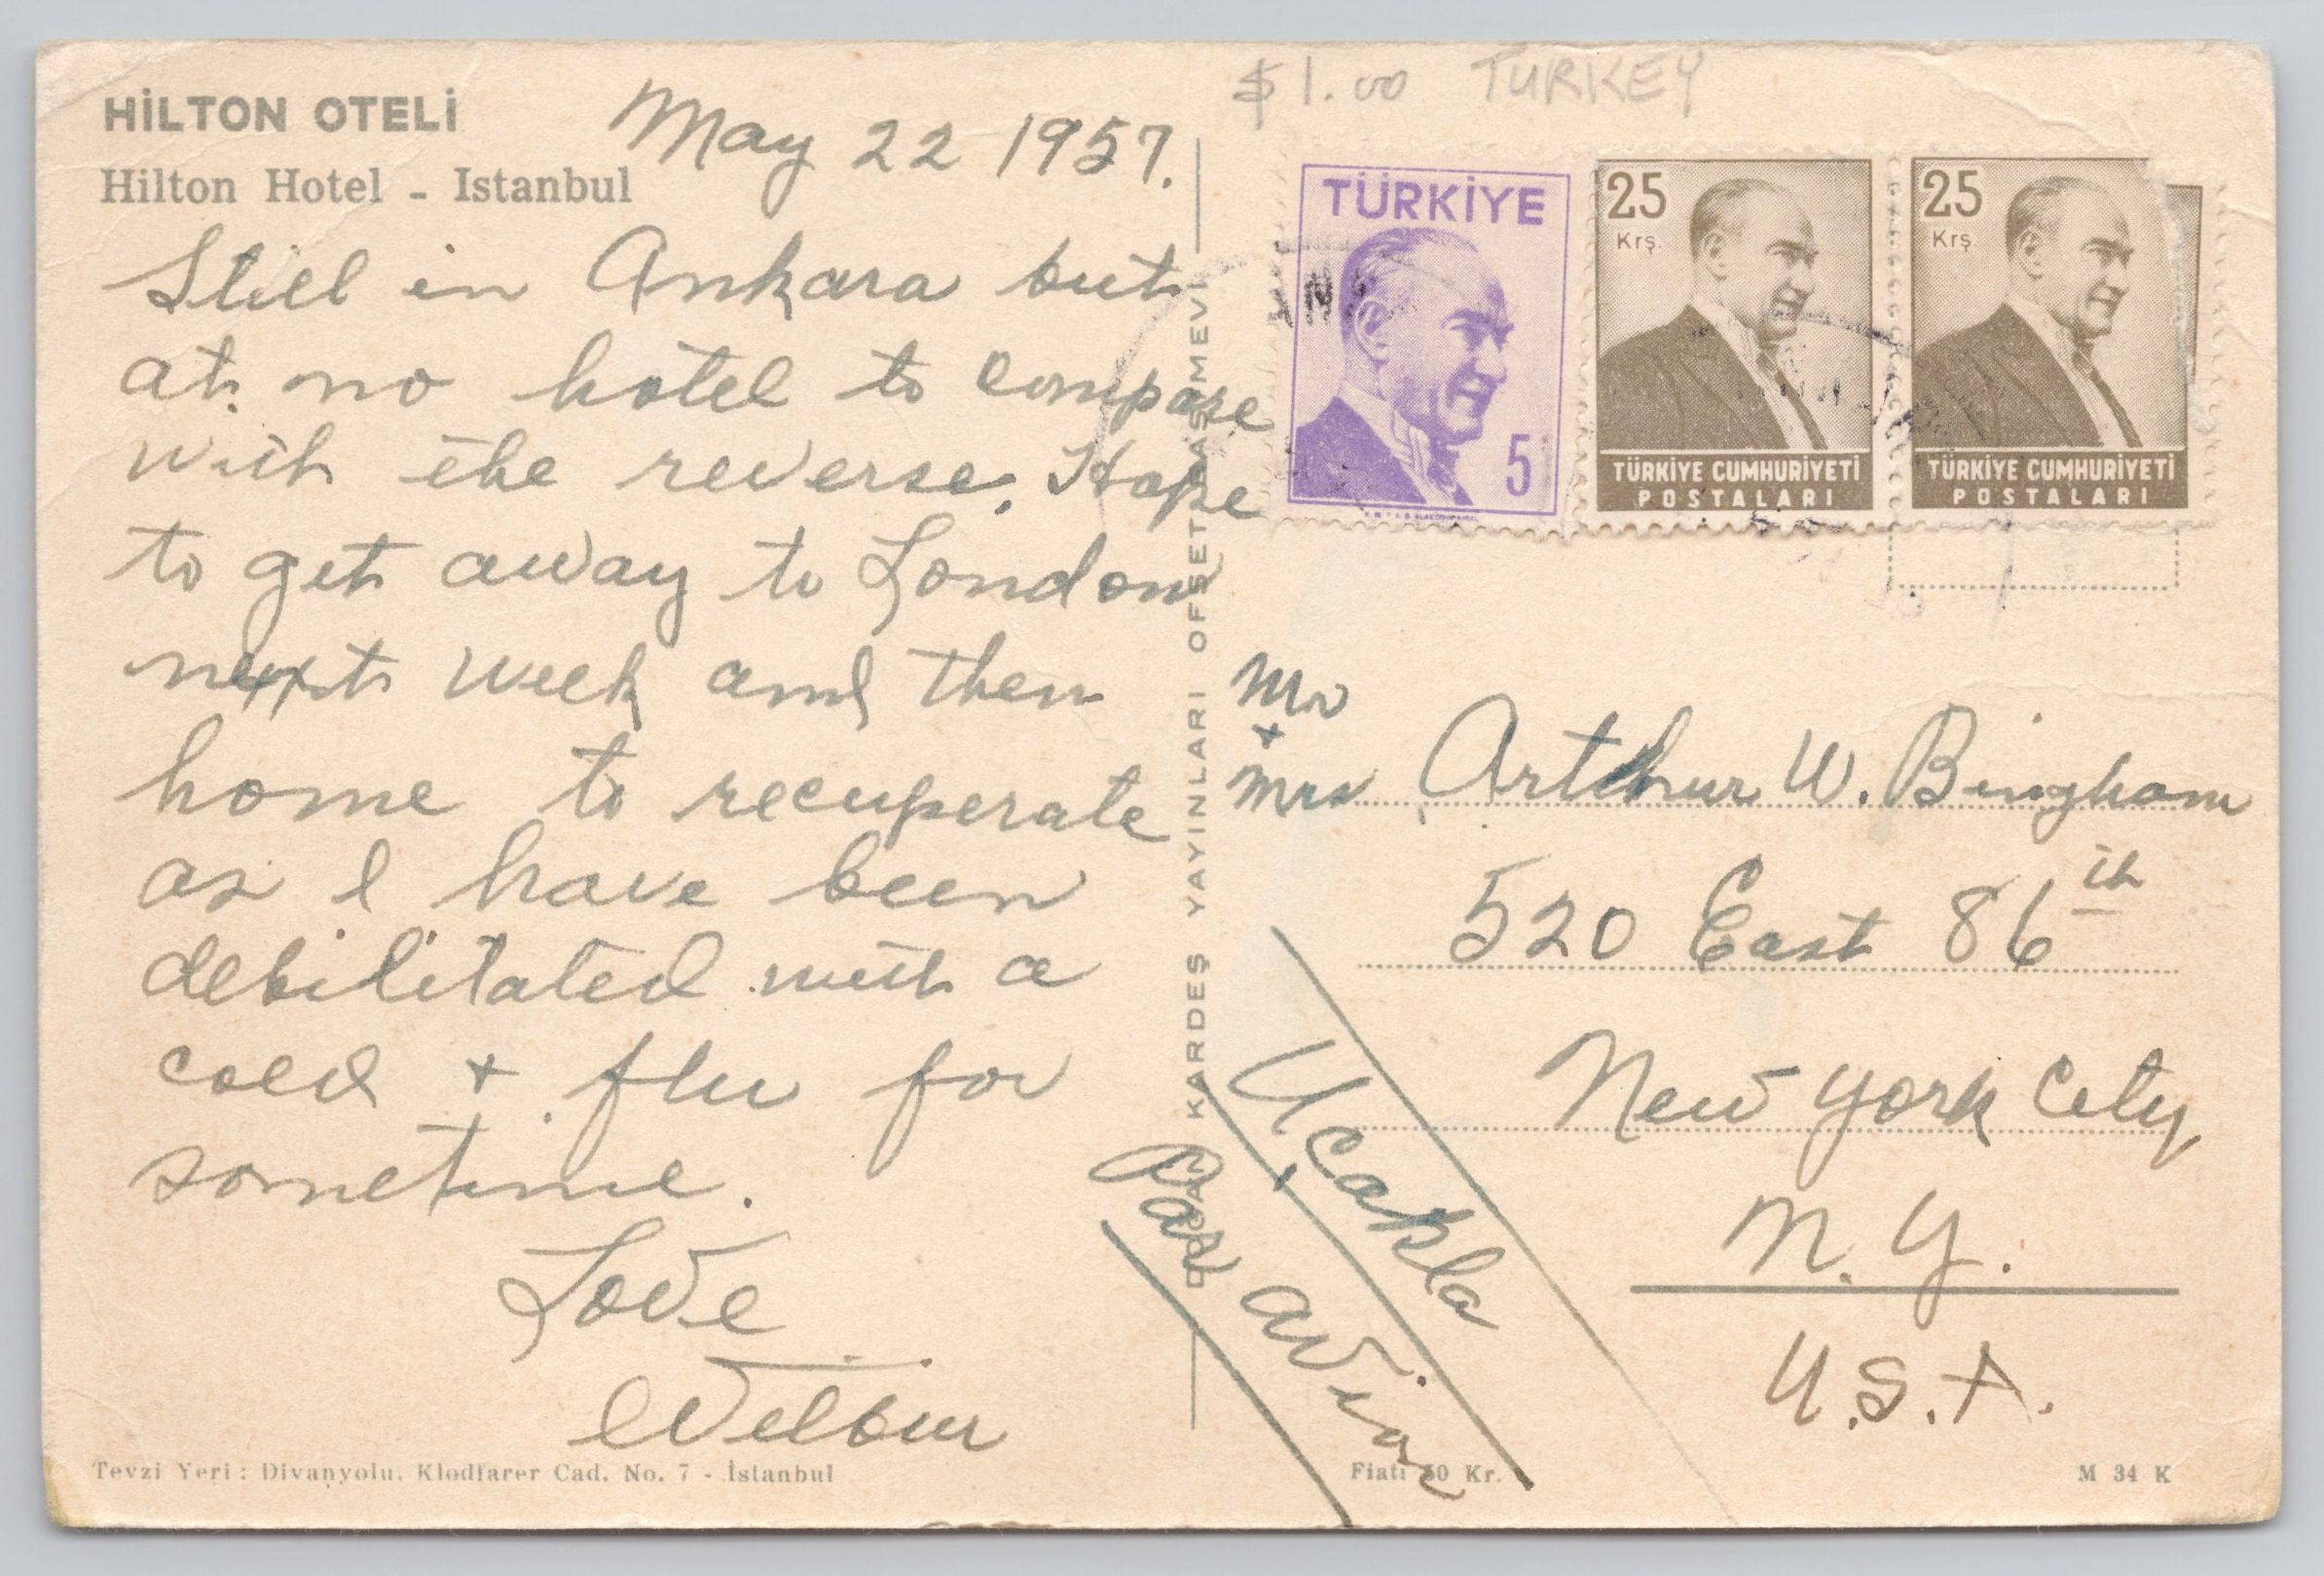 HİLTON OTELİ
Hilton Hotel - Istanbul
May 22 1957.
Still in Ankara but
at no hotel to compare
with the reverse. Hope
to get away to London
next week and then
home to recuperate
as I have been
debilitated with a
cold + flu for
sometime.
Love
Wilbur
Tevzi Yeri : Divanyolu. Klodfarer Cad. No. 7 - İstanbul
KARDEŞ YAYINLARI OFSET BASIMEVİ
$1.00 TURKEY
TÜRKİYE
5
25
Krş.
TÜRKİYE CUMHURİYETİ
POSTALARI
25
Krş
TÜRKİYE CUMHURİYETİ
POSTALARI
Mr
+
Mrs Arthur W. Bingham
520 East 86th
New York City,
N.Y.
U.S.A.
Uçakla
Par avion
Fiatı Kr.
M 34 K